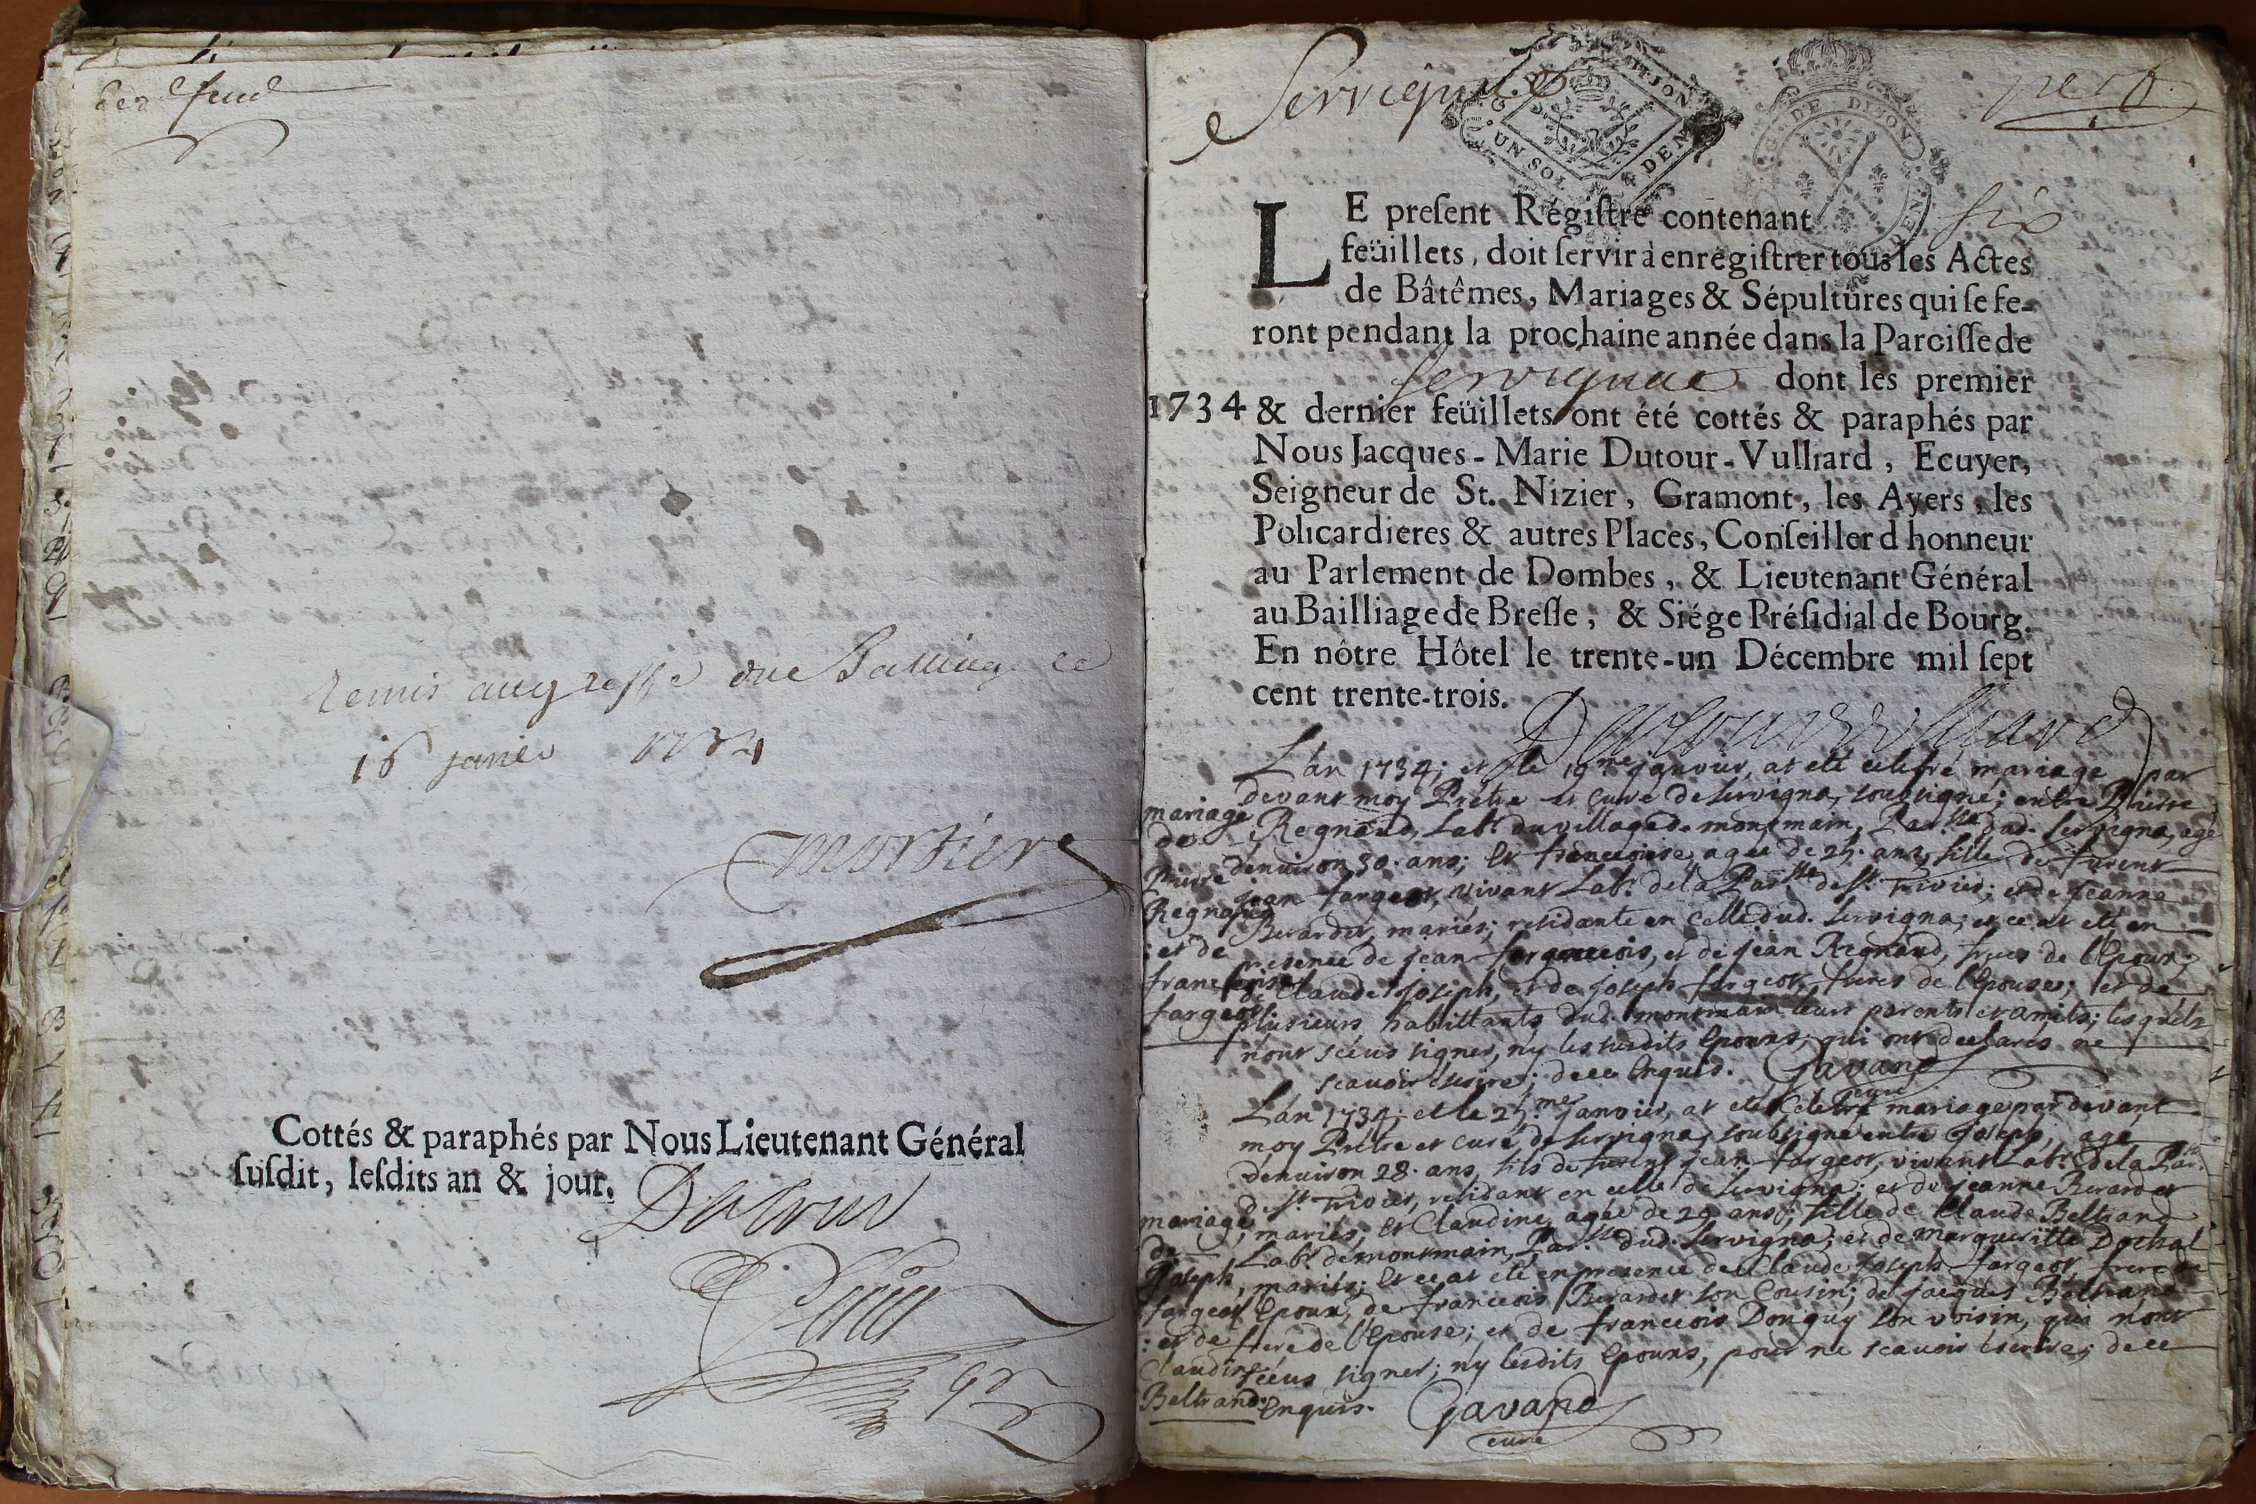 Remis au greffe du Bailliage ce
16 janvier 1734
Cottés & paraphés par Nous Lieutenant Général
ſuſdit, leſdits an & jour.
Servignat
G. DE DIJON
UN SOL 4 DEN
G. DE DIJON
LE preſent Regiſtre contenant six
feüillets, doit ſervir à enregiſtrer tous les Actes
de Bâtêmes, Mariages & Sépultures qui ſe fe-
ront pendant la prochaine année dans la Paroiſſe de
Servignat dont les premier
1734 & dernier feüillets ont été cottés & paraphés par
Nous Jacques-Marie Dutour-Vulliard, Ecuyer,
Seigneur de St. Nizier, Gramont, les Ayers, les
Policardieres & autres Places, Conſeiller d honneur
au Parlement de Dombes, & Lieutenant Général
au Bailliage de Breſſe, & Siége Préſidial de Bourg.
En nôtre Hôtel le trente-un Décembre mil ſept
cent trente-trois.
mariage
de
Pierre
Regnaud
: et de
francoise
fargeot
Lán 1734; et le 19.me janvier, at eté celebré mariage par
devant moy Prétre et curé de servigna, soubsigné; entre Pierre
Regnaud, Lab.r du village de montmain, Par.sse dud. servigna, agé
denuiron 30. ans; Et francoise agée de 25. ans, fille de furent
jean fargeot, vivant Lab.r de la Par.sse de s.t Trivier; et de jeanne
Berardet, mariés; residante en celle dud. servigna; et ce at eté en
presence de jean francois, et de jean Regnaud, freres de l'Epoux;
de Claude joseph, et de joseph fargeot, freres de l'Epouse; et de
plusieurs habittants dud. montmain leurs parents et amits; lesquels
n'ont scéus signer, ny les susdits Epoux; qui ont declarés ne
scavoir écrire; de ce Enquis. Gavand
curé
mariage
de
Joseph
fargeot
: et de
Claudine
Beltrand.
Lán 1734; et le 25.me janvier, at eté Celebré mariage par devant
moy Prétre et curé de servigna, soubsigné entre joseph, agé
denuiron 28. ans, fils de furent jean fargeot, vivant Lab.r de la Par.sse
de s.t Trivier, residant en celle de servigna; et de jeanne Berardet
mariés; Et Claudine agée de 29 ans; fille de Claude Beltrand
Lab.r de montmain, Par.sse dud. servigna; et de margueritte Dochal
mariés; Et ce at eté en presence de Claude joseph fargeot frere de
l'Epoux, de francois Berardet son Cousin; de jacques Beltrand
frere de l'Epouse; et de francois Donguy son voisin, qui n'ont
scéus signer; ny lesdits Epoux, pour ne scavoir écrire; de ce
Enquis. Gavand
curé